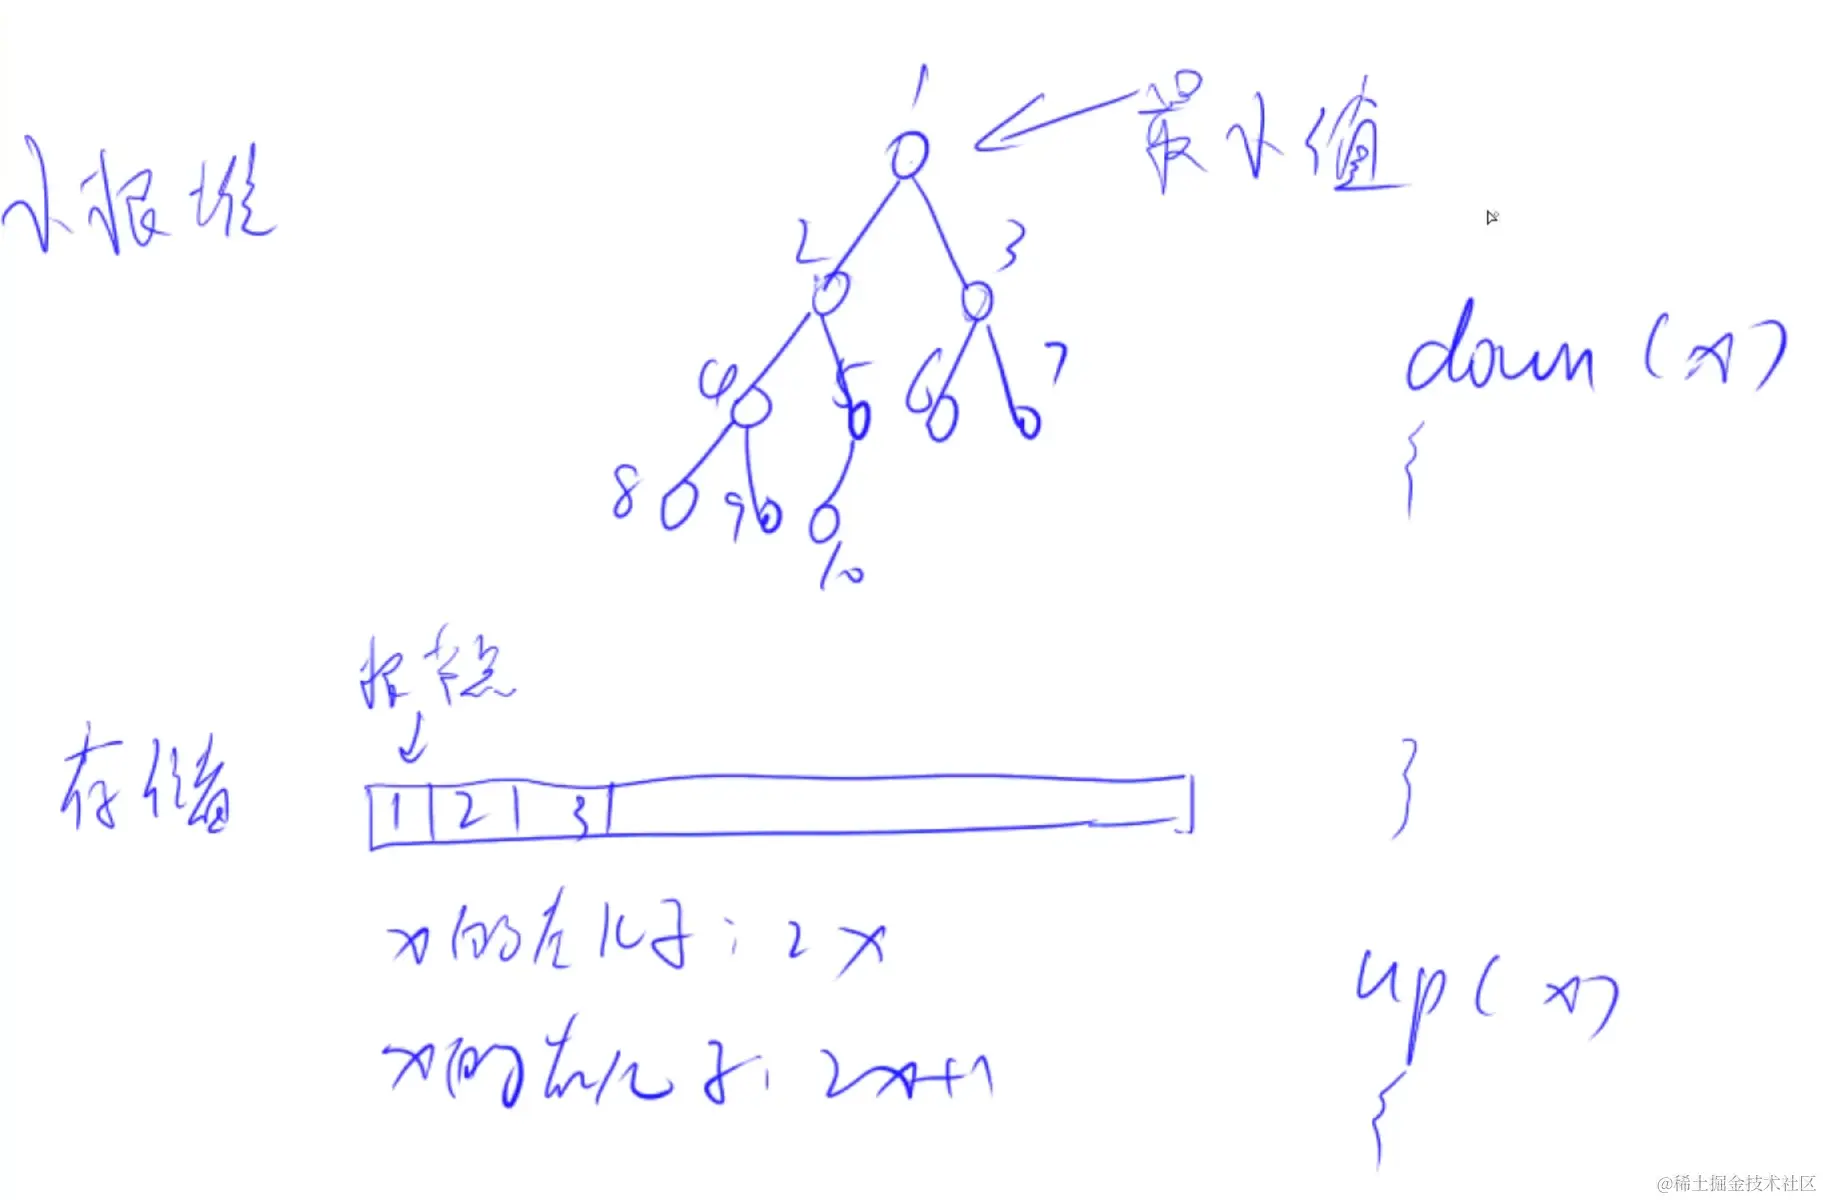 小根堆
1
最小值
2 3
down(x)
4 5 6 7
{
8 9
10
根节点
存储
1 2 3
}
x的左儿子: 2x
up(x)
x的右儿子: 2x+1
{
@稀土掘金技术社区